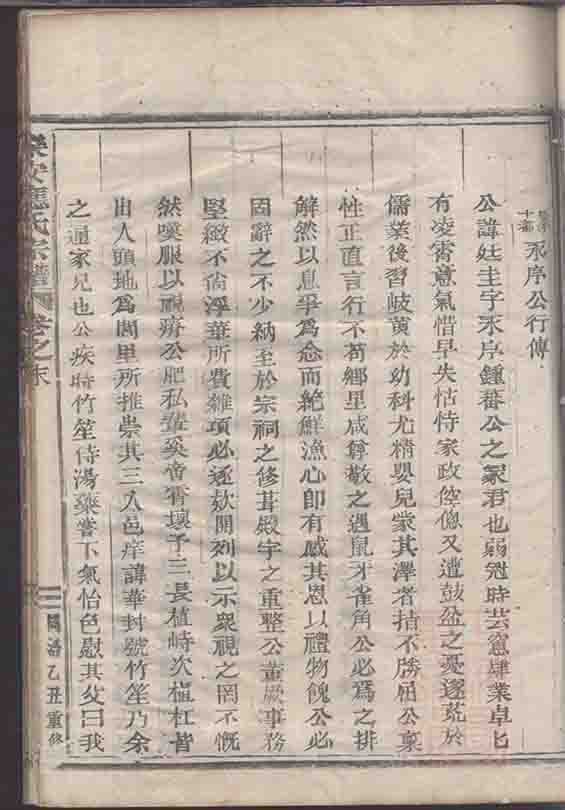 永序公行傳
公諱廷圭字永序鍾蕃公之冢君也弱冠時芸窓肄業卓匕
有凌霄意氣惜早失怙恃家政倥傯又遭鼓盆之憂遂荒於
儒業後習岐黃於幼科尤精嬰兒蒙其澤者指不勝屈公稟
性正直言行不苟鄉里咸尊敬之遇鼠牙雀角公必為之排
解然以息爭為念而絶鮮漁心即有感其恩以禮物餽公必
固辭之不少納至於宗祠之修葺殿宇之重整公董厥事務
堅緻不尚浮華所費雜項必逐欵開列以示衆視之罔不慨
然嘆服以視瘠公肥私者奚啻霄壤予三長植峙次植杠皆
出人頭地為閭里所推崇其三入邑庠諱華封號竹笙乃余
之通家兄也公疾時竹笙侍湯藥嘗下氣怡色慰其父曰我
樂安 氏宗譜 卷之末
乙丑重修